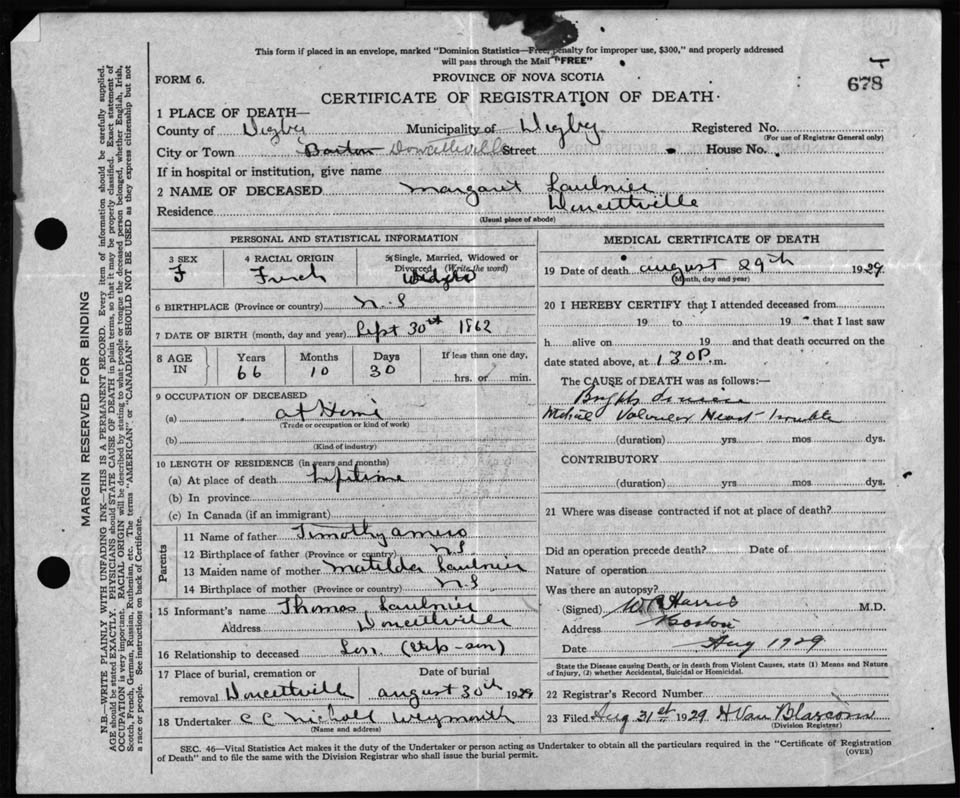 This form if placed in an envelope, marked "Dominion Statistics—Free, penalty for improper use, $300," and properly addressed
will pass through the Mail "FREE"
FORM 6. PROVINCE OF NOVA SCOTIA 678
CERTIFICATE OF REGISTRATION OF DEATH
MARGIN RESERVED FOR BINDING
N.B.—WRITE PLAINLY WITH UNFADING INK—THIS IS A PERMANENT RECORD. Every item of information should be carefully supplied.
AGE should be stated EXACTLY. PHYSICIANS should STATE CAUSE OF DEATH in plain terms, so that it may be properly classified. Exact statement of
OCCUPATION is very important. RACIAL ORIGIN will be described by stating to what people or tongue the deceased person belonged, whether English, Irish,
Scotch, French, German, Russian, Ruthenian, etc. The terms "AMERICAN" or "CANADIAN" SHOULD NOT BE USED as they express citizenship but not
a race or people. See instructions on back of Certificate.
1 PLACE OF DEATH—
County of Digby Municipality of Digby Registered No.
(For use of Registrar General only)
City or Town Barton Doucetteville Street House No.
If in hospital or institution, give name
2 NAME OF DECEASED Margaret Saulnier
Residence Doucettville
(Usual place of abode)
PERSONAL AND STATISTICAL INFORMATION
3 SEX 4 RACIAL ORIGIN 5 Single, Married, Widowed or
Divorced (Write the word)
F French
6 BIRTHPLACE (Province or country) N.S
7 DATE OF BIRTH (month, day and year) Sept 30th 1862
8 AGE IN Years Months Days If less than one day,
66 10 30 hrs. or min.
9 OCCUPATION OF DECEASED
(a) at Home
(Trade or occupation or kind of work)
(b)
(Kind of industry)
10 LENGTH OF RESIDENCE (in years and months)
(a) At place of death Lifetime
(b) In province
(c) In Canada (if an immigrant)
Parents
11 Name of father Timothy Amero
12 Birthplace of father (Province or country) N.S
13 Maiden name of mother Matilda Saulnier
14 Birthplace of mother (Province or country) N.S
15 Informant's name Thomas Saulnier
Address Doucettville
16 Relationship to deceased Son (step-son)
17 Place of burial, cremation or Date of burial
removal Doucettville August 30th 1929
18 Undertaker C C Nichols Weymouth
(Name and address)
MEDICAL CERTIFICATE OF DEATH
19 Date of death August 29th 1929
(Month, day and year)
20 I HEREBY CERTIFY that I attended deceased from
19 to 19 that I last saw
h alive on 19 and that death occurred on the
date stated above, at 1 30 P. m.
The CAUSE of DEATH was as follows:—
Brights disease
Valvular Heart Trouble
(duration) yrs mos dys.
CONTRIBUTORY
(duration) yrs. mos. dys.
21 Where was disease contracted if not at place of death?
Did an operation precede death? Date of
Nature of operation
Was there an autopsy?
(Signed) Harris M.D.
Address Barton
Date Aug 1929
State the Disease causing Death, or in death from Violent Causes, state (1) Means and Nature
of Injury, (2) whether Accidental, Suicidal or Homicidal.
22 Registrar's Record Number
23 Filed Aug 31st 1929 H Van Blarcom
(Division Registrar)
SEC. 46—Vital Statistics Act makes it the duty of the Undertaker or person acting as Undertaker to obtain all the particulars required in the "Certificate of Registration
of Death" and to file the same with the Division Registrar who shall issue the burial permit. (OVER)